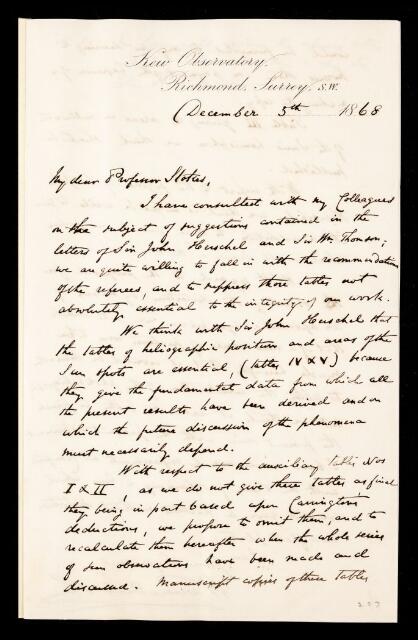 Kew Observatory,
Richmond, Surrey, S.W.
December 5th 1868
My dear Professor Stokes,
I have consulted with my Colleagues
on the subject of suggestions contained in the
letters of Sir John Herschel and Sir Wm. Thomson;
we are quite willing to fall in with the recommendations
of the referees, and to suppress those tables not
absolutely essential to the integrity of our work.
We think with Sir John Herschel that
the tables of heliographic positions and areas of the
Sun spots are essential, (tables IV & V) because
they give the fundamental data from which all
the present results have been derived and on
which the future discussion of the phenomena
must necessarily depend.
With respect to the auxiliary tables Nos
I & II, as we do not give these tables as final
they being in part based upon Carrington's
deductions, we propose to omit them, and to
recalculate them hereafter when the whole series
of sun observations have been made and
discussed. Manuscript copies of these tables